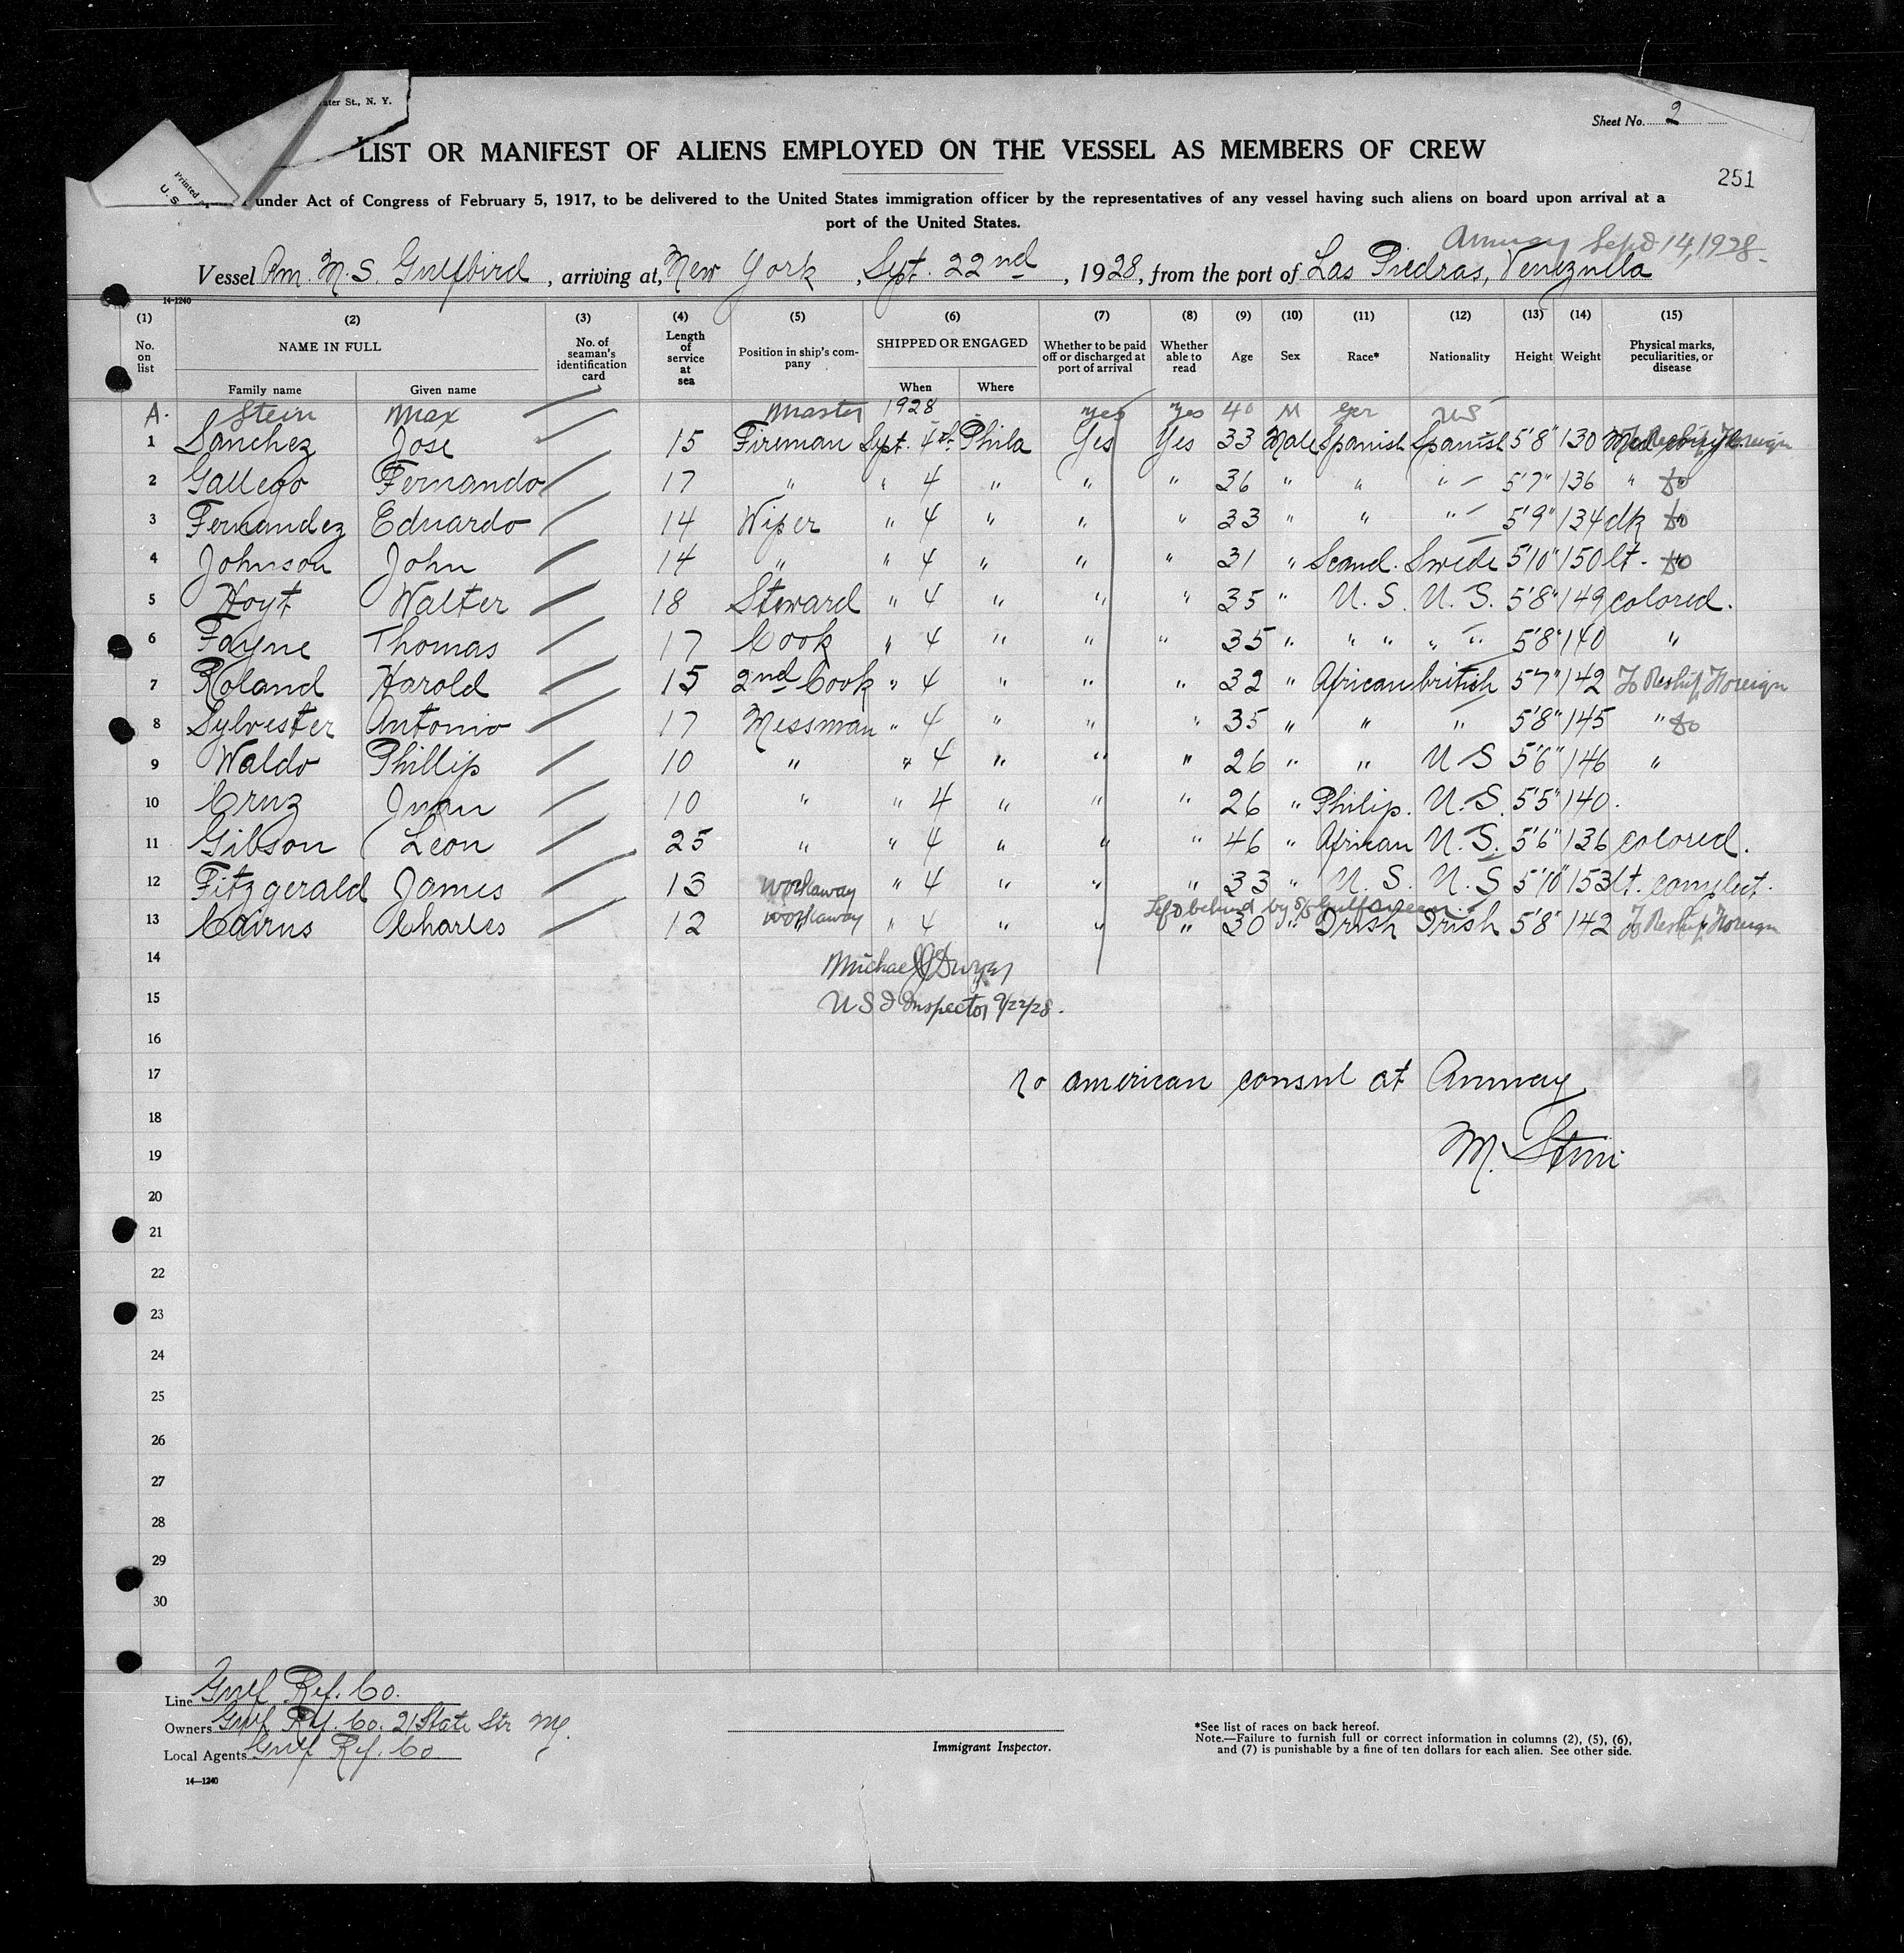 ater St., N. Y.
Printed
U. S
Sheet No. 2
LIST OR MANIFEST OF ALIENS EMPLOYED ON THE VESSEL AS MEMBERS OF CREW
251
under Act of Congress of February 5, 1917, to be delivered to the United States immigration officer by the representatives of any vessel having such aliens on board upon arrival at a
port of the United States.
Amuay Sept 14, 1928
Vessel Am. M.S. Gulfbird, arriving at, New York, Sept. 22nd, 1928, from the port of Las Piedras, Venezuela
14-1240
(1) (2) (3) (4) (5) (6) (7) (8) (9) (10) (11) (12) (13) (14) (15)
No. on list NAME IN FULL No. of seaman's identification card Length of service at sea Position in ship's company SHIPPED OR ENGAGED Whether to be paid off or discharged at port of arrival Whether able to read Age Sex Race* Nationality Height Weight Physical marks, peculiarities, or disease
Family name Given name When Where
A. Stein Max Master 1928 Yes Yes 40 M Ger US
1 Sanchez Jose 15 Fireman Sept. 4th. Phila Yes Yes 33 Male Spanish Spanish 5'8" 130 To Reship Foreign
2 Gallego Fernando 17 " " 4 " " " 36 " " " 5'7" 136 " do
3 Fernandez Eduardo 14 Wiper " 4 " " " 33 " " " 5'9" 134 dk do
4 Johnson John 14 " " 4 " " " 31 " Scand. Swede 5'10" 150 lt. - do
5 Hoyt Walter 18 Steward " 4 " " " 35 " U. S. U. S. 5'8" 149 colored.
6 Fayne Thomas 17 Cook " 4 " " " 35 " " " " " 5'8" 140 "
7 Roland Harold 15 2nd Cook " 4 " " " 32 " African british 5'7" 142 To Reship Foreign
8 Sylvester Antonio 17 Messman " 4 " " " 35 " " " 5'8" 145 " do
9 Waldo Phillip 10 " " 4 " " " 26 " " U S 5'6" 146 "
10 Cruz Juan 10 " " 4 " " " 26 " Philip. U. S. 5'5" 140.
11 Gibson Leon 25 " " 4 " " " 46 " African U. S. 5'6" 136 colored.
12 Fitzgerald James 13 workaway " 4 " " " 33 " U. S. U. S 5'10" 153 lt. complect.
Left behind by S/S
13 Cairns Charles 12 workaway " 4 " " " 30 " Irish Irish 5'8" 142 To Reship Foreign
14 Michael J Dwyer
15 U S I Inspector 9/22/28.
16
17 no american consul at Amuay
18
19 M. Stein
20
21
22
23
24
25
26
27
28
29
30
Line Gulf Ref. Co.
Owners Gulf Ref. Co. 21 State Str NY.
Local Agents Gulf Ref. Co
Immigrant Inspector.
*See list of races on back hereof.
Note.—Failure to furnish full or correct information in columns (2), (5), (6),
and (7) is punishable by a fine of ten dollars for each alien. See other side.
14—1240